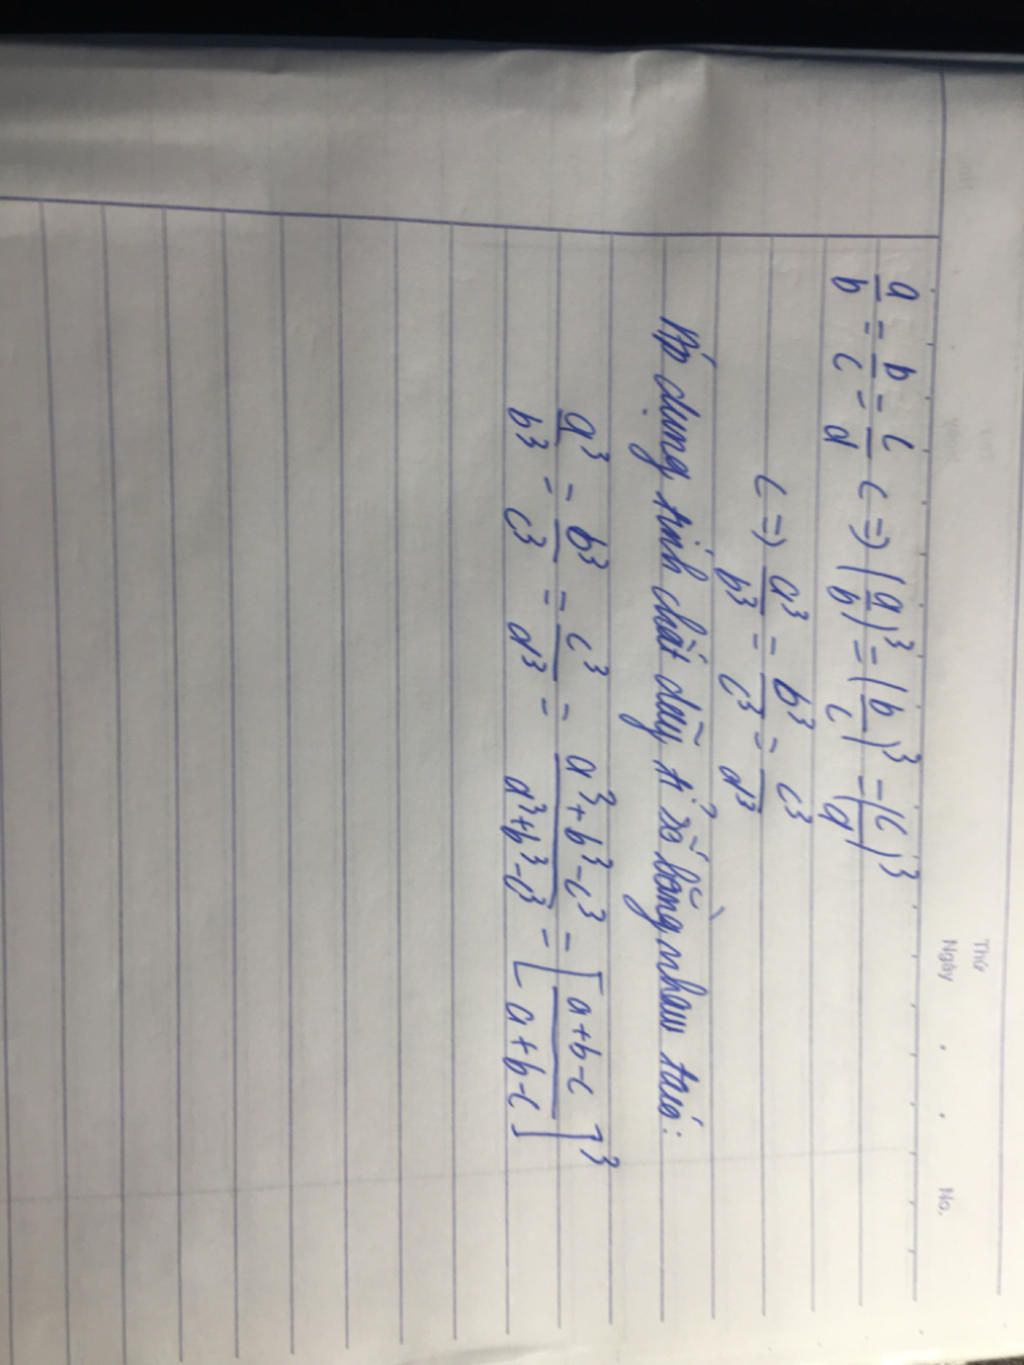 Thứ
Ngày . . No.
a/b = b/c = c/d <=> (a/b)³ = (b/c)³ = (c/d)³
<=> a³/b³ = b³/c³ = c³/d³
Áp dụng tính chất dãy tỉ số bằng nhau ta có:
a³/b³ = b³/c³ = c³/d³ = a³+b³-c³/d³+b³-c³ = [a+b-c/a+b-c]³